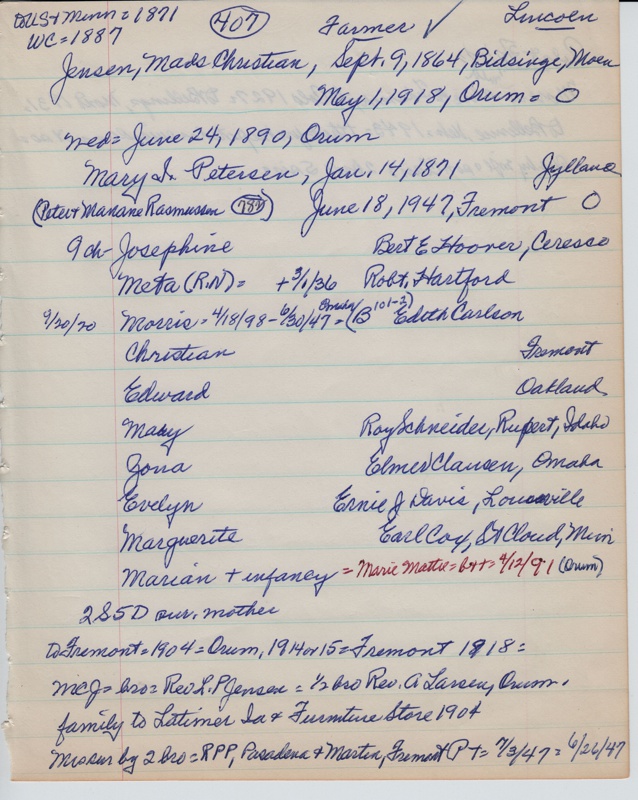 to US & Minn = 1871 (407) Farmer ✓ Lincoln
WC = 1887
Jensen, Mads Christian, Sept. 9, 1864, Bidsinge, Moen
May 1, 1918, Orum = O
Med = June 24, 1890, Orum
Mary I. Petersen, Jan. 14, 1871 Jylland
(Peter & Mariane Rasmussen 784) June 18, 1947, Fremont O
9 ch - Josephine Bert E Hoover, Ceresco
Meta (R.N) = + 3/1/36 Robt. Hartford
9/20/20 Morris = 4/18/98 - 6/30/47 Omaha = (B 101-2) Edith Carlson
Christian Fremont
Edward Oakland
Mary Roy Schneider, Rupert, Idaho
Zona Elmer Clausen, Omaha
Evelyn Ernie J Davis, Louisville
Marguerite Earl Coy, St Cloud, Minn
Marian + infancy = Marie Mattie = b++ = 4/12/91 (Orum)
2 S 5 D sur. mother
to Fremont = 1904 = Orum, 1914 or 15 = Fremont 1918 =
MCJ = bro = Rev L.P. Jensen = ½ bro Rev. A Larsen, Orum.
family to Latimer Ia & Furniture Store 1904
M sur by 2 bro = RPP, Pasadena & Martin, Fremont PT = 7/3/47 = 6/26/47